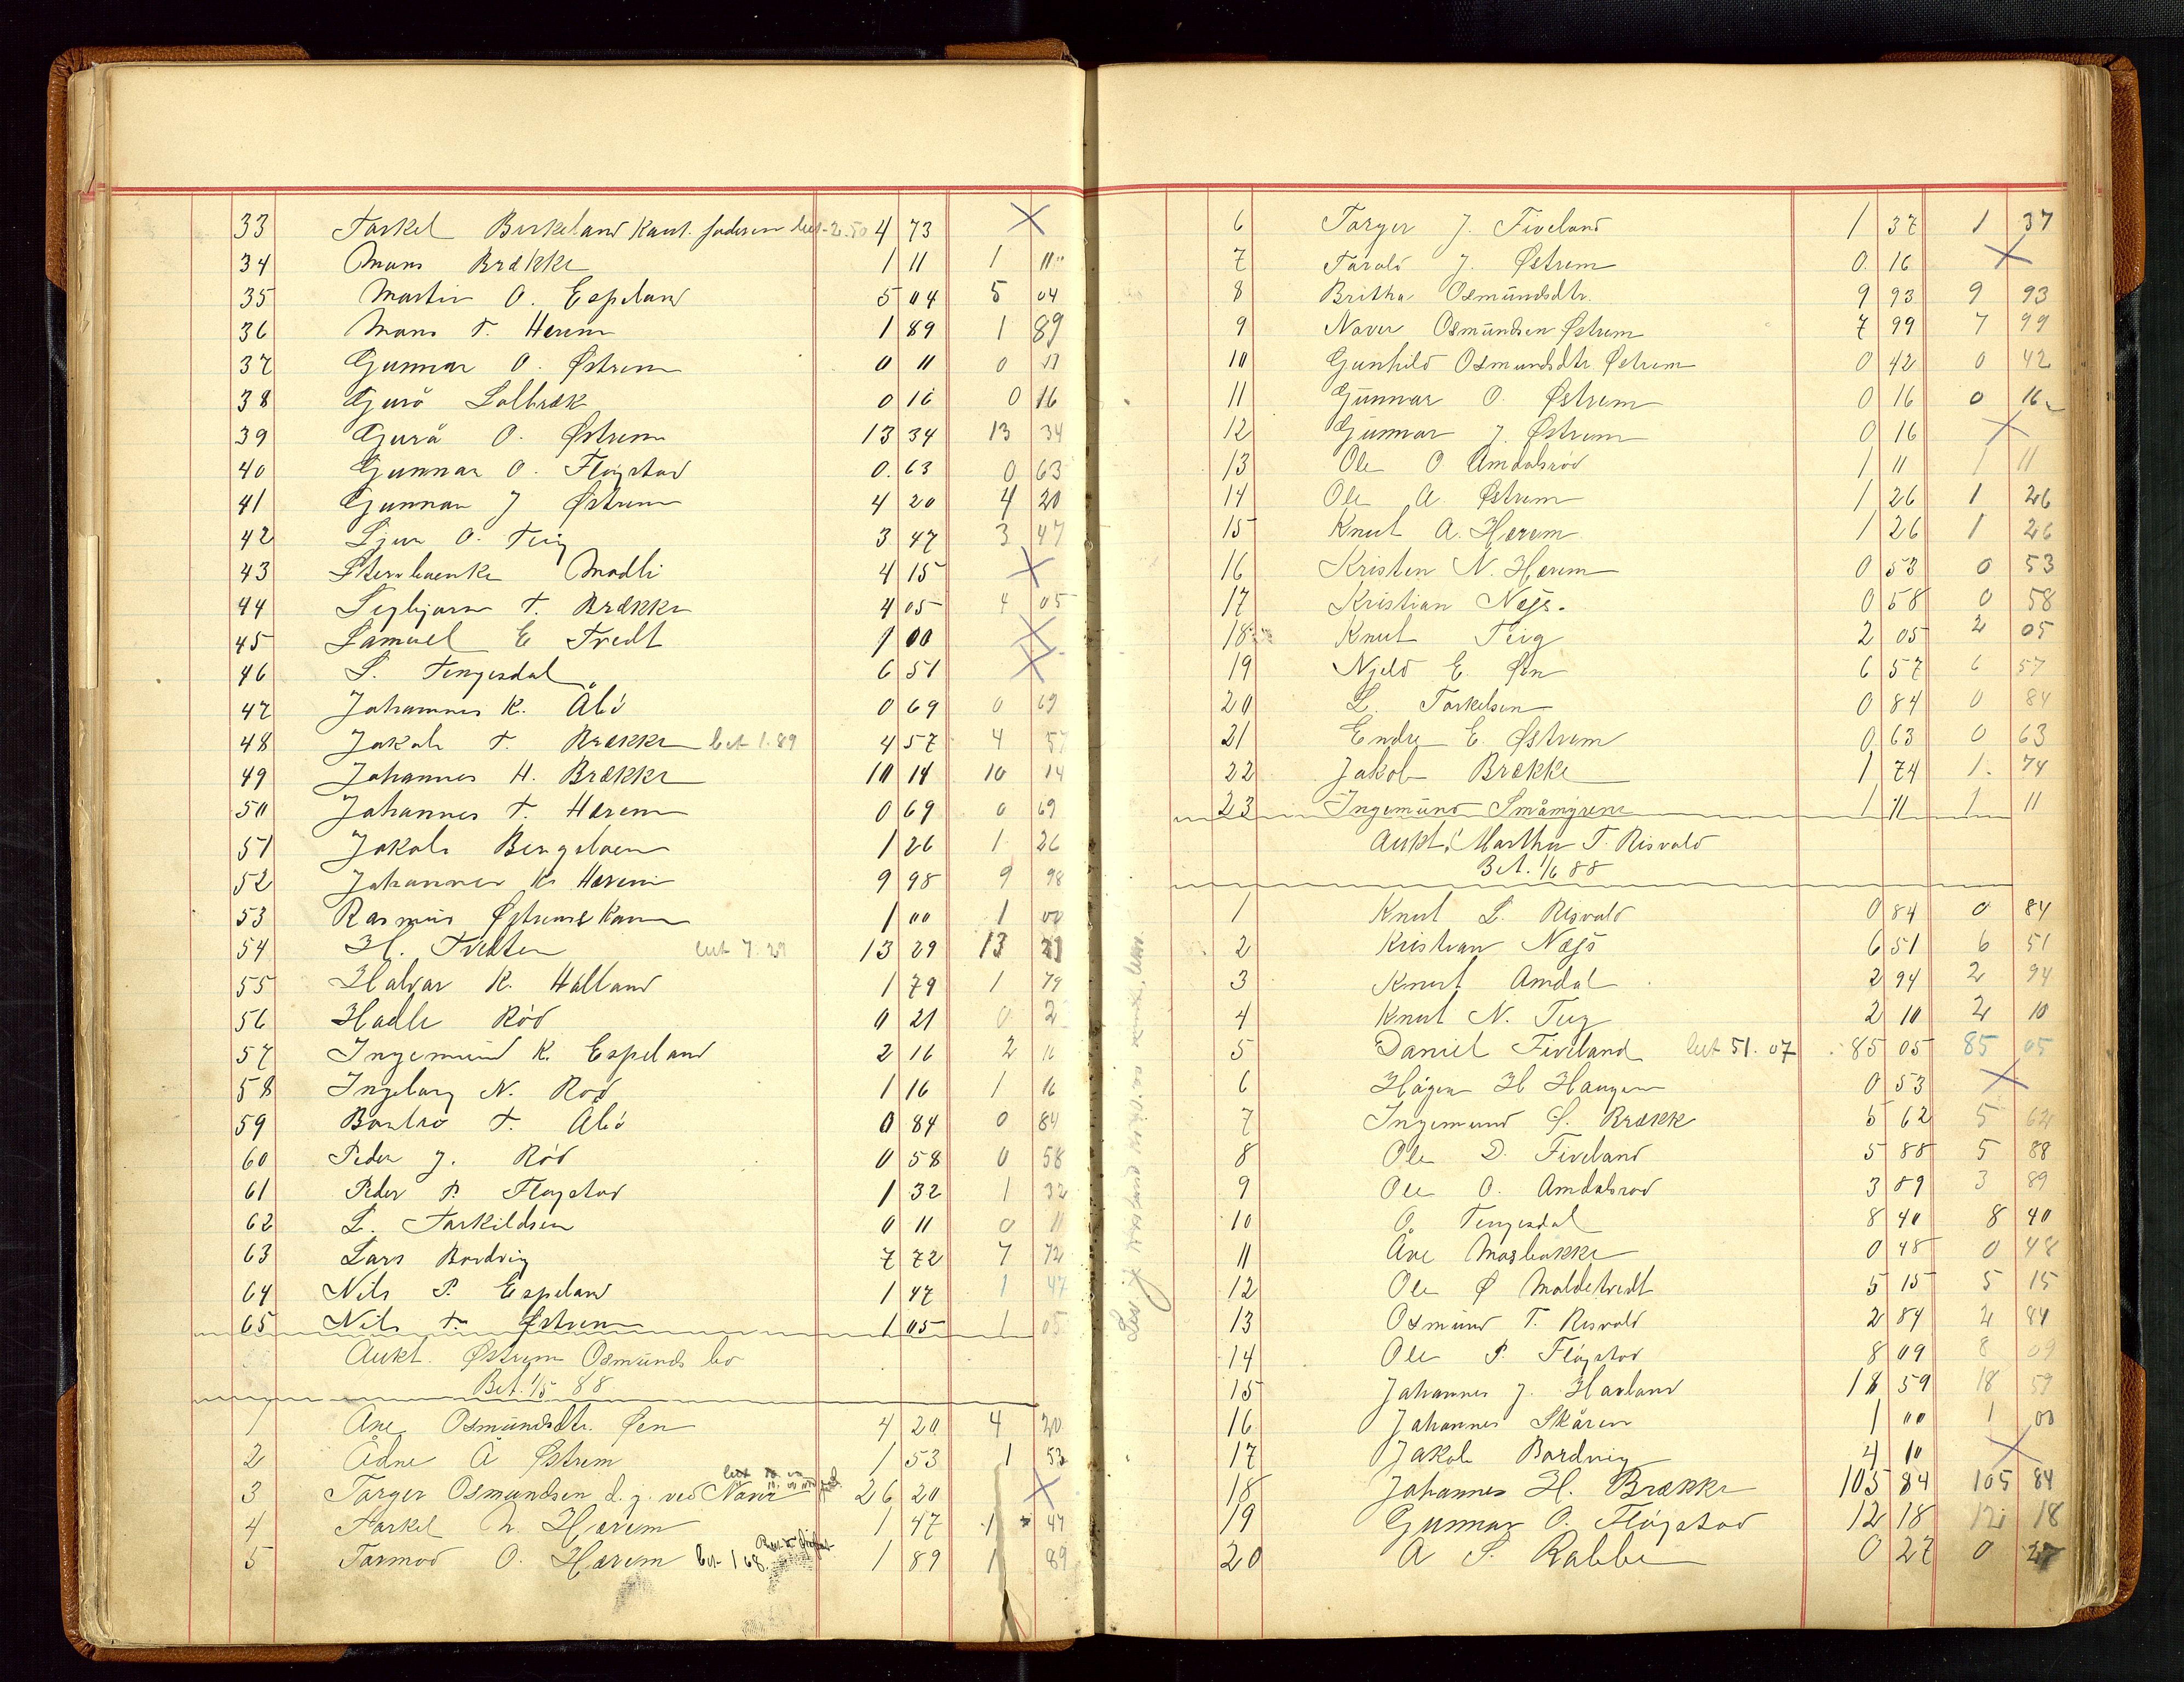 33 Torkel Birkeland Kaut. bet 2.50 4 73 X
34 Mons Brække 1 11 1 11
35 Martin O. Espeland 5 04 5 04
36 Mons T. Hærem 1 89 1 89
37 Gunnar O. Østrem 0 11 0 11
38 Guro 0 16 0 16
39 Gurå O. Østrem 13 34 13 34
40 Gunnar O. Fløgstad 0.63 0 63
41 Gunnar J Østrem 4 20 4 20
42 Sjur O. Teig 3 47 3 47
43 Modli 4 15 X
44 Segbjørn T. Brække 4 05 4 05
45 Samuel E Tvedt 1 00 X
46 S. Tengesdal 6 51 X
47 Johannes K. Åbö 0 69 0 69
48 Jakob T. Brække bet 1.89 4 57 4 57
49 Johannes H. Brække 10 14 10 14
50 Johannes T. Hærem 0 69 0 69
51 Jakob 1 26 1 26
52 Johannes K. Hærem 9 98 9 98
53 Rasmus 1 00 1 00
54 H. Tvedten bet 7.29 13 29 13 29
55 Halvar K. Hålland 1 79 1 79
56 Hadle Röd 0 21 0 2
57 Ingemund K. Espeland 2 16 2 16
58 Ingeborg N. Röd 1 16 1 16
59 T. Åbö 0 84 0 84
60 Peder J. Röd 0 58 0 58
61 Peder P. Fløgstad 1 32 1 32
62 L. Torkildsen 0 11 0 11
63 Lars Bordvig 7 72 7 72
64 Nils P. Espeland 1 47 1 47
65 Nils T. Østrem 1 05 1 05
Aukt. Østrem Osmunds bo
Bet. 1/5 88
1 Ane Osmundsdtr. Øen 4 20 4 20
2 Ådne Å Østrem 1 53 1 53
3 Torger Osmundsen d. y. ved Naver 26 20 X
4 Torkel N. Hærem 1 47 1 47
5 Tormod O. Hærem bet 1 68 1 89 1 89
6 Torger J. Fiveland 1 37 1 37
7 Tarald J. Østrem 0.16 X
8 Britha Osmundsdtr. 9 93 9 93
9 Naver Osmundsen Østrem 7 99 7 99
10 Gunhild Osmundsdtr. Østrem 0 42 0 42
11 Gunnar O. Østrem 0 16 0 16
12 Gunnar J. Østrem 0 16 X
13 Ole O Amdalsröd 1 11 1 11
14 Ole A. Østrem 1 26 1 26
15 Knut A. Hærem 1 26 1 26
16 Kristen N. Hærem 0 53 0 53
17 Kristian Næjs. 0 58 0 58
18 Knut Teig 2 05 2 05
19 Njeld E. Øen 6 57 6 57
20 L. Torkelsen 0 84 0 84
21 Endre E. Østrem 0 63 0 63
22 Jakob Brække 1 74 1. 74
23 Ingemund Småmyrene 1 11 1 11
Aukt. Martha T. Risvold
Bet. 1/6 88
1 Knut L. Risvold 0 84 0 84
2 Kristian Næjs 6 51 6 51
3 Knut Amdal 2 94 2 94
4 Knut N. Teig 2 10 2 10
5 Daniel Fiveland bet 51.07 85 05 85 05
6 Hågen H Haugen 0 53 X
7 Ingemund S. Brække 5 62 5 62
8 Ole D. Fiveland 5 88 5 88
9 Ole O. Amdalsrød 3 89 3 89
10 O. Tengesdal 8 40 8 40
11 Ave Mosbække 0 48 0 48
12 Ole Ø Moldetvedt 5 15 5 15
13 Osmund T. Risvold 2 84 2 84
14 Ole P. Fløgstad 8 09 8 09
15 Johannes J. Hovland 18 59 18 59
16 Johannes Skåren 1 00 1 00
17 Jakob Bordvig 4 10 X
18 Johannes H. Brække 105 84 105 84
19 Gunnar O. Fløgstad 12 18 12 18
20 A S. Rabbe 0 27 0 27